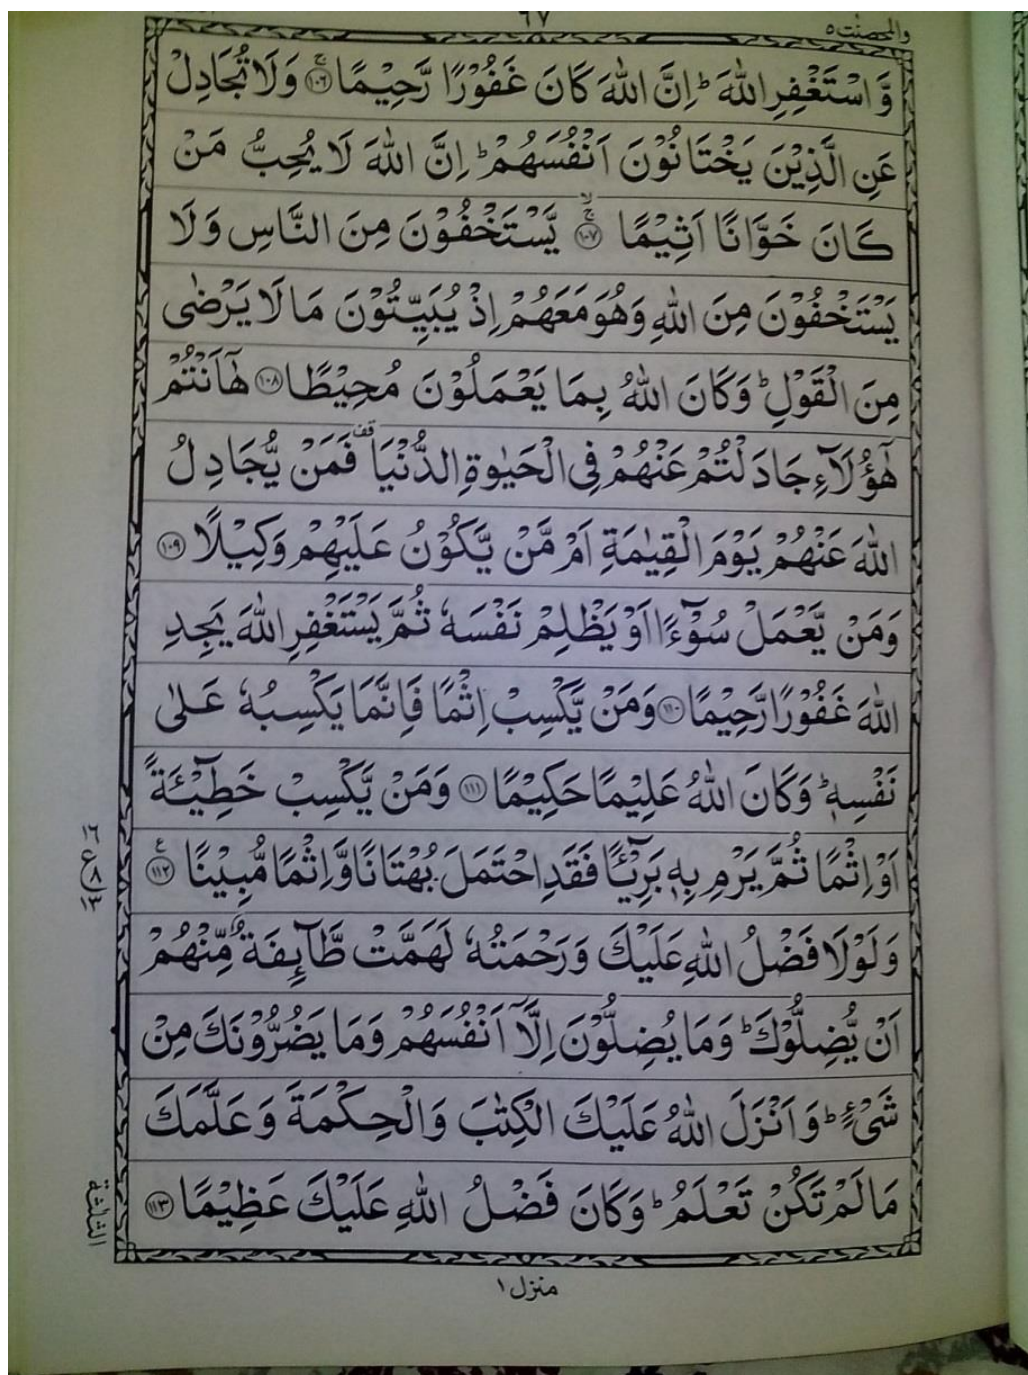 ٦٧
والمحصنت ٥
وَّاسْتَغْفِرِ اللّٰهَ ؕ اِنَّ اللّٰهَ كَانَ غَفُوْرًا رَّحِيْمًا ۚ‏﴿۱۰۶﴾ وَلَا تُجَادِلْ
عَنِ الَّذِيْنَ يَخْتَانُوْنَ اَنْفُسَهُمْ ؕ اِنَّ اللّٰهَ لَا يُحِبُّ مَنْ
كَانَ خَوَّانًا اَثِيْمًا ۚۙ ﴿۱۰۷﴾ يَّسْتَخْفُوْنَ مِنَ النَّاسِ وَلَا
يَسْتَخْفُوْنَ مِنَ اللّٰهِ وَهُوَ مَعَهُمْ اِذْ يُبَيِّتُوْنَ مَا لَا يَرْضٰى
مِنَ الْقَوْلِ ؕ وَكَانَ اللّٰهُ بِمَا يَعْمَلُوْنَ مُحِيْطًا ﴿۱۰۸﴾ هٰۤاَنْتُمْ
هٰۤؤُلَآءِ جَادَلْتُمْ عَنْهُمْ فِى الْحَيٰوةِ الدُّنْيَا قف فَمَنْ يُّجَادِلُ
اللّٰهَ عَنْهُمْ يَوْمَ الْقِيٰمَةِ اَمْ مَّنْ يَّكُوْنُ عَلَيْهِمْ وَكِيْلًا ﴿۱۰۹﴾
وَمَنْ يَّعْمَلْ سُوْٓءًا اَوْ يَظْلِمْ نَفْسَهٗ ثُمَّ يَسْتَغْفِرِ اللّٰهَ يَجِدِ
اللّٰهَ غَفُوْرًا رَّحِيْمًا ﴿۱۱۰﴾ وَمَنْ يَّكْسِبْ اِثْمًا فَاِنَّمَا يَكْسِبُهٗ عَلٰى
نَفْسِهٖ ؕ وَكَانَ اللّٰهُ عَلِيْمًا حَكِيْمًا ﴿۱۱۱﴾ وَمَنْ يَّكْسِبْ خَطِيْٓئَةً
اَوْ اِثْمًا ثُمَّ يَرْمِ بِهٖ بَرِيْٓــًٔا فَقَدِ احْتَمَلَ بُهْتَانًا وَّاِثْمًا مُّبِيْنًا ﴿۱۱۲﴾ ع
وَلَوْلَا فَضْلُ اللّٰهِ عَلَيْكَ وَرَحْمَتُهٗ لَهَمَّتْ طَّآئِفَةٌ مِّنْهُمْ
اَنْ يُّضِلُّوْكَ ؕ وَمَا يُضِلُّوْنَ اِلَّاۤ اَنْفُسَهُمْ وَمَا يَضُرُّوْنَكَ مِنْ
شَىْءٍ ؕ وَاَنْزَلَ اللّٰهُ عَلَيْكَ الْكِتٰبَ وَالْحِكْمَةَ وَعَلَّمَكَ
مَا لَمْ تَكُنْ تَعْلَمُ ؕ وَكَانَ فَضْلُ اللّٰهِ عَلَيْكَ عَظِيْمًا ﴿۱۱۳﴾
١٦
ع ٨
١٣
الثلثة
منزل ١